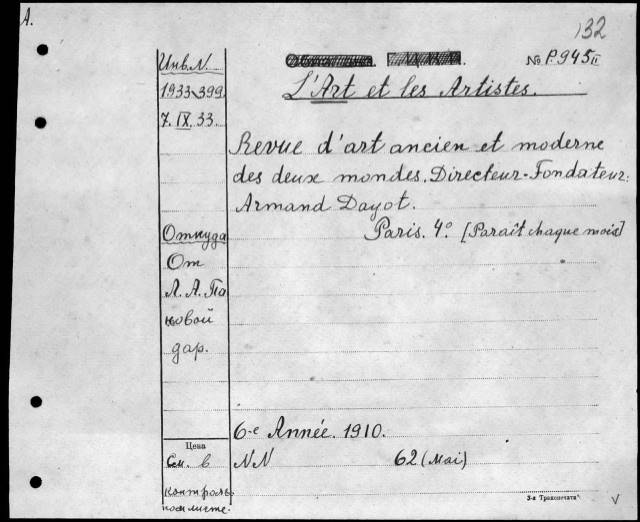 A.
132
Инв. N.
№ P.945 II
1933-399.
L'Art et les Artistes.
7. IX. 33.
Revue d'art ancien et moderne
des deux mondes. Directeur-Fondateur:
Armand Dayot.
Откуда
Paris. 4º. [Paraît chaque mois]
От
Л. А. Па
новой
дар.
6-e Année. 1910.
Цена
См. в
NN 62 (Mai)
контроль.
листе.
3-я Транспечати
V